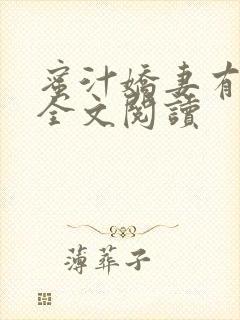 蜜汁嬌妻有
全文閱讀
薄葬子